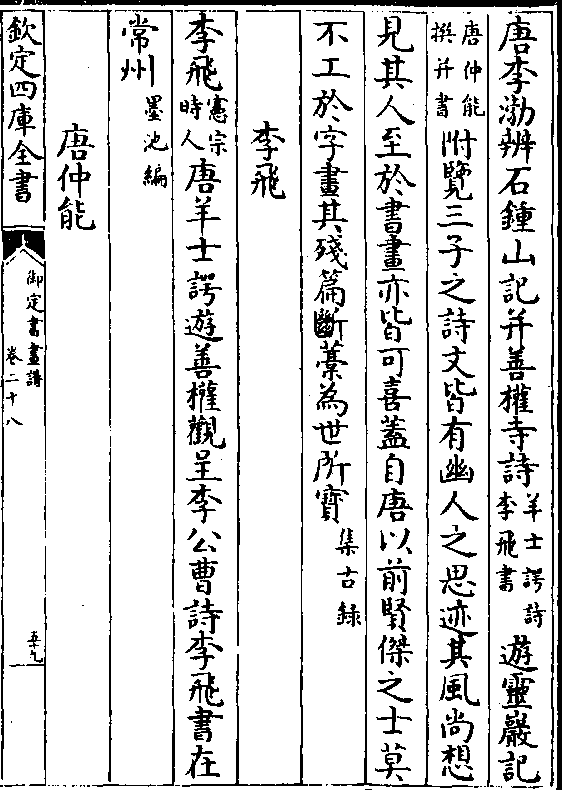 唐李渤辨石鍾山記并善權寺詩羊士諤詩李飛書遊靈巖記
唐仲能撰并書附覽三子之詩文皆有幽人之思迹其風尚想
見其人至於書畫亦皆可喜蓋自唐以前賢傑之士莫
不工於字畫其殘篇斷藁為世所寶集古録
李飛
李飛憲宗時人唐羊士諤遊善權觀呈李公曹詩李飛書在
常州墨池編
唐仲能
欽定四庫全書
御定書畫譜
卷二十八
五十九